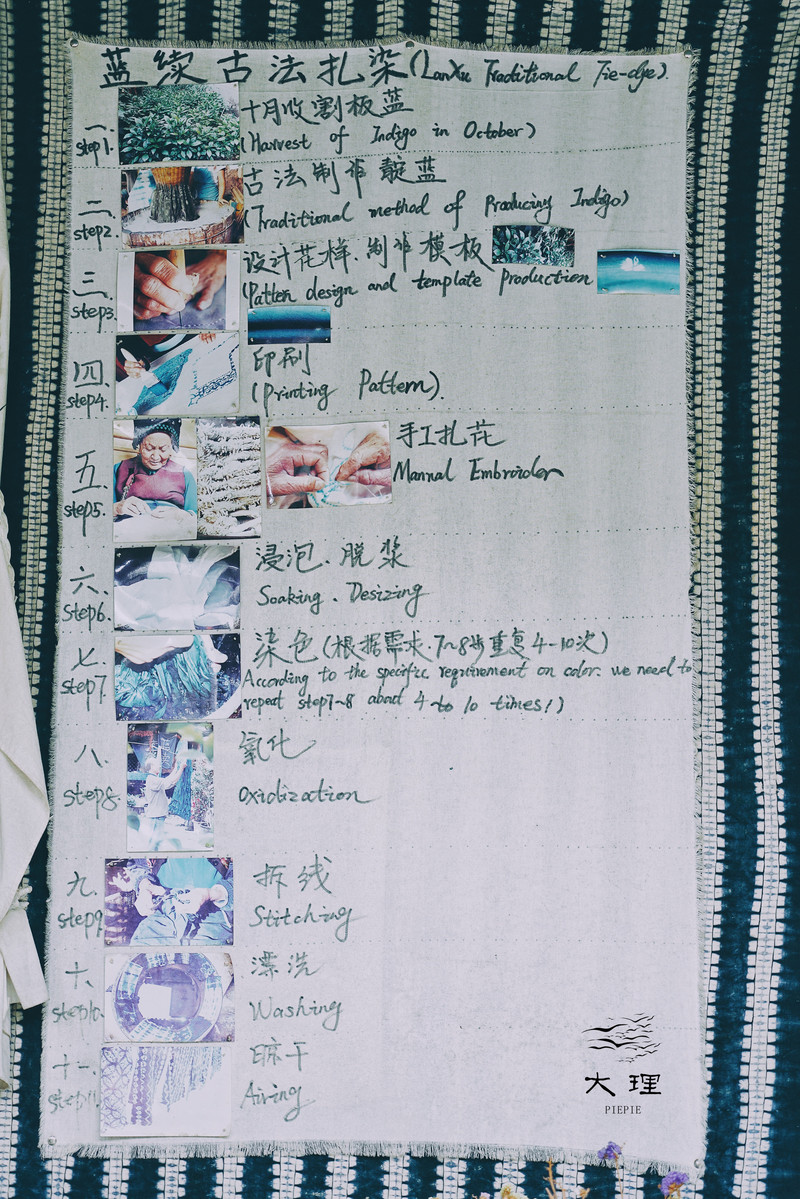 蓝续古法扎染(LanXu Traditional Tie-dye).
一. 十月收割板蓝
step1. (Harvest of Indigo in October)
二. 古法制作靛蓝
step2. (Traditional method of Producing Indigo)
三. 设计花样.制作模板
step3. (Patten design and template Production
四. 印刷
step4. (Printing Pattern).
五. 手工扎花
step5. Mannal Embroider
六. 浸泡.脱浆
Step6. Soaking. Desizing
七. 染色(根据需求.7~8步重复4-10次)
step7. According to the specific requirement on color. we need to
repeat step7~8 about 4 to 10 times!)
八. 氧化
step8. Oxidization
九. 拆线
step9 Stitching
十. 漂洗
step10. Washing
十一. 晾干
step11. Airing
大理
PIEPIE